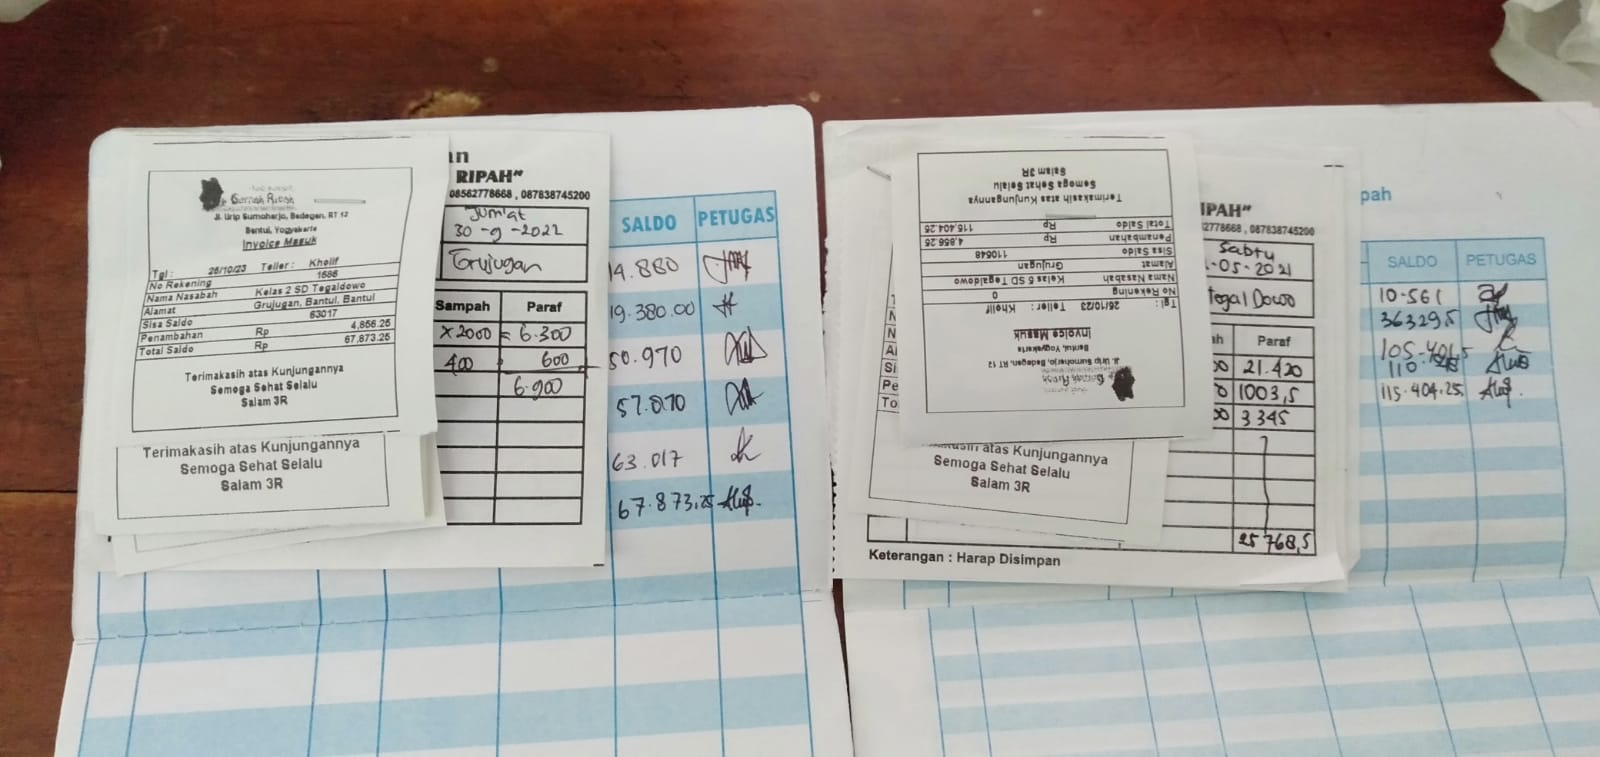 Gemah Ripah
Jl. Urip Sumoharjo, Badegan, RT 12
Bantul, Yogyakarta
Invoice Masuk
Tgl : 26/10/23 Teller : Kholif
No Rekening 1686
Nama Nasabah Kelas 2 SD Tegaldowo
Alamat Grujugan, Bantul, Bantul
Sisa Saldo 63017
Penambahan Rp 4,856.25
Total Saldo Rp 67,873.25
Terimakasih atas Kunjungannya
Semoga Sehat Selalu
Salam 3R
Terimakasih atas Kunjungannya
Semoga Sehat Selalu
Salam 3R
RIPAH"
08562778668 , 087838745200
Jum'at
30 -9 -2022
Grujugan
Sampah Paraf
x 2000 = 6.300
400 600
6.900
SALDO PETUGAS
14.880
19.380.00
50.970
57.870
63.017
67.873,25
Gemah Ripah
Jl. Urip Sumoharjo, Badegan, RT 12
Bantul, Yogyakarta
Invoice Masuk
Tgl : 26/10/23 Teller : Kholif
No Rekening 0
Nama Nasabah Kelas 5 SD Tegaldowo
Alamat Grujugan
Sisa Saldo 110548
Penambahan Rp 4,856.25
Total Saldo Rp 115,404.25
Terimakasih atas Kunjungannya
Semoga Sehat Selalu
Salam 3R
Kunjungannya
Semoga Sehat Selalu
Salam 3R
IPAH"
2778668 , 087838745200
Sabtu
-05-2021
Tegal Dowo
Paraf
21.420
1003,5
3345
25 768,5
Keterangan : Harap Disimpan
pah
SALDO PETUGAS
10-561
36329,5
115.404.25